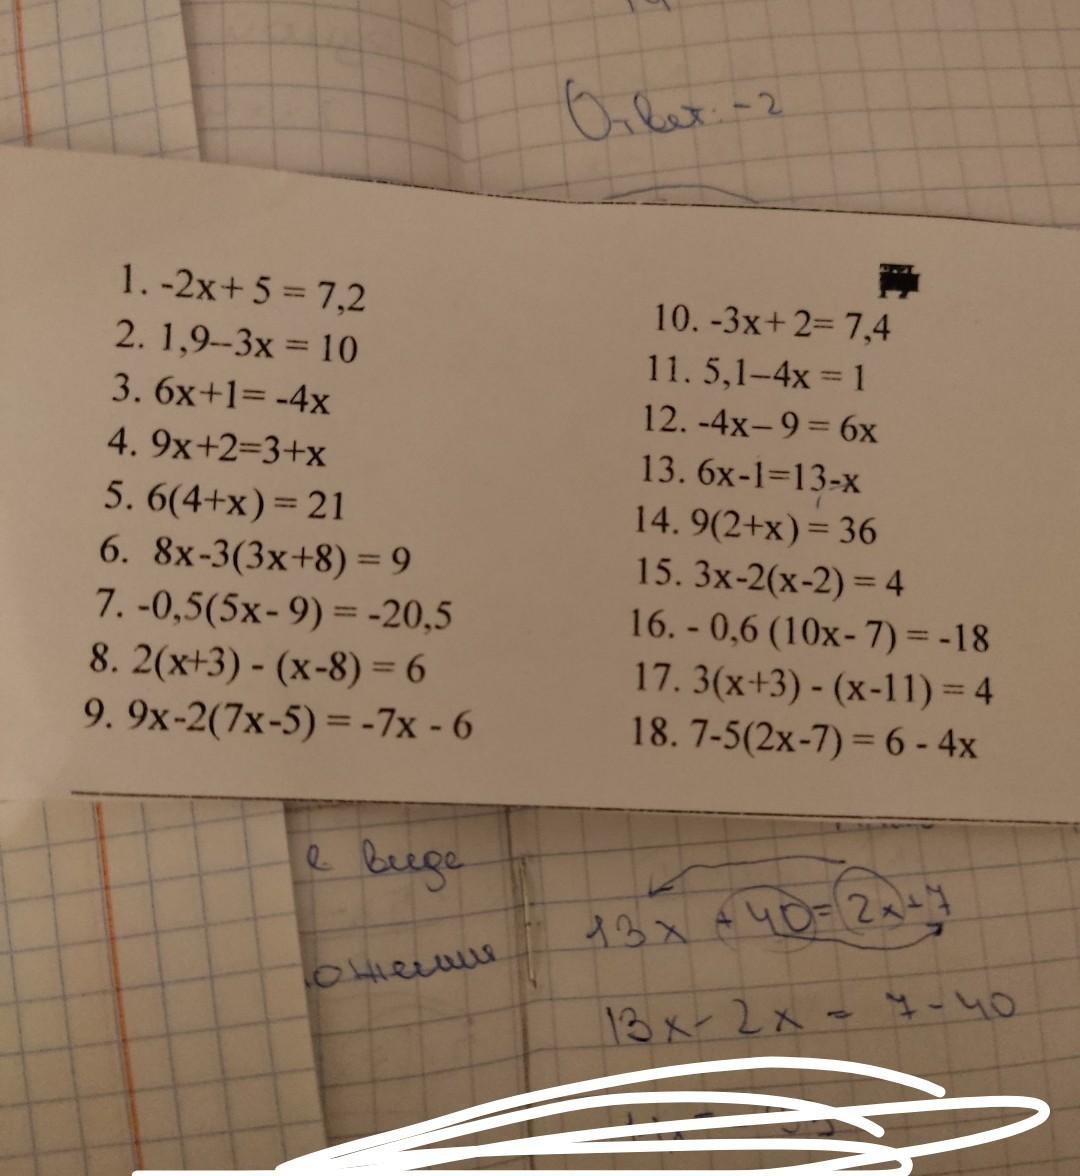 Ответ: -2
1. -2x+ 5 = 7,2
2. 1,9–3x = 10
3. 6x+1= -4x
4. 9x+2=3+x
5. 6(4+x) = 21
6. 8x-3(3x+8) = 9
7. -0,5(5x- 9) = -20,5
8. 2(x+3) - (x-8) = 6
9. 9x-2(7x-5) = -7x - 6
10. -3x+ 2= 7,4
11. 5,1–4x = 1
12. -4x– 9 = 6x
13. 6x-1=13-x
14. 9(2+x) = 36
15. 3x-2(x-2) = 4
16. - 0,6 (10x- 7) = -18
17. 3(x+3) - (x-11) = 4
18. 7-5(2x-7) = 6 - 4x
в виде
ожения
13x + 40 = 2x + 7
13x - 2x = 7 - 40